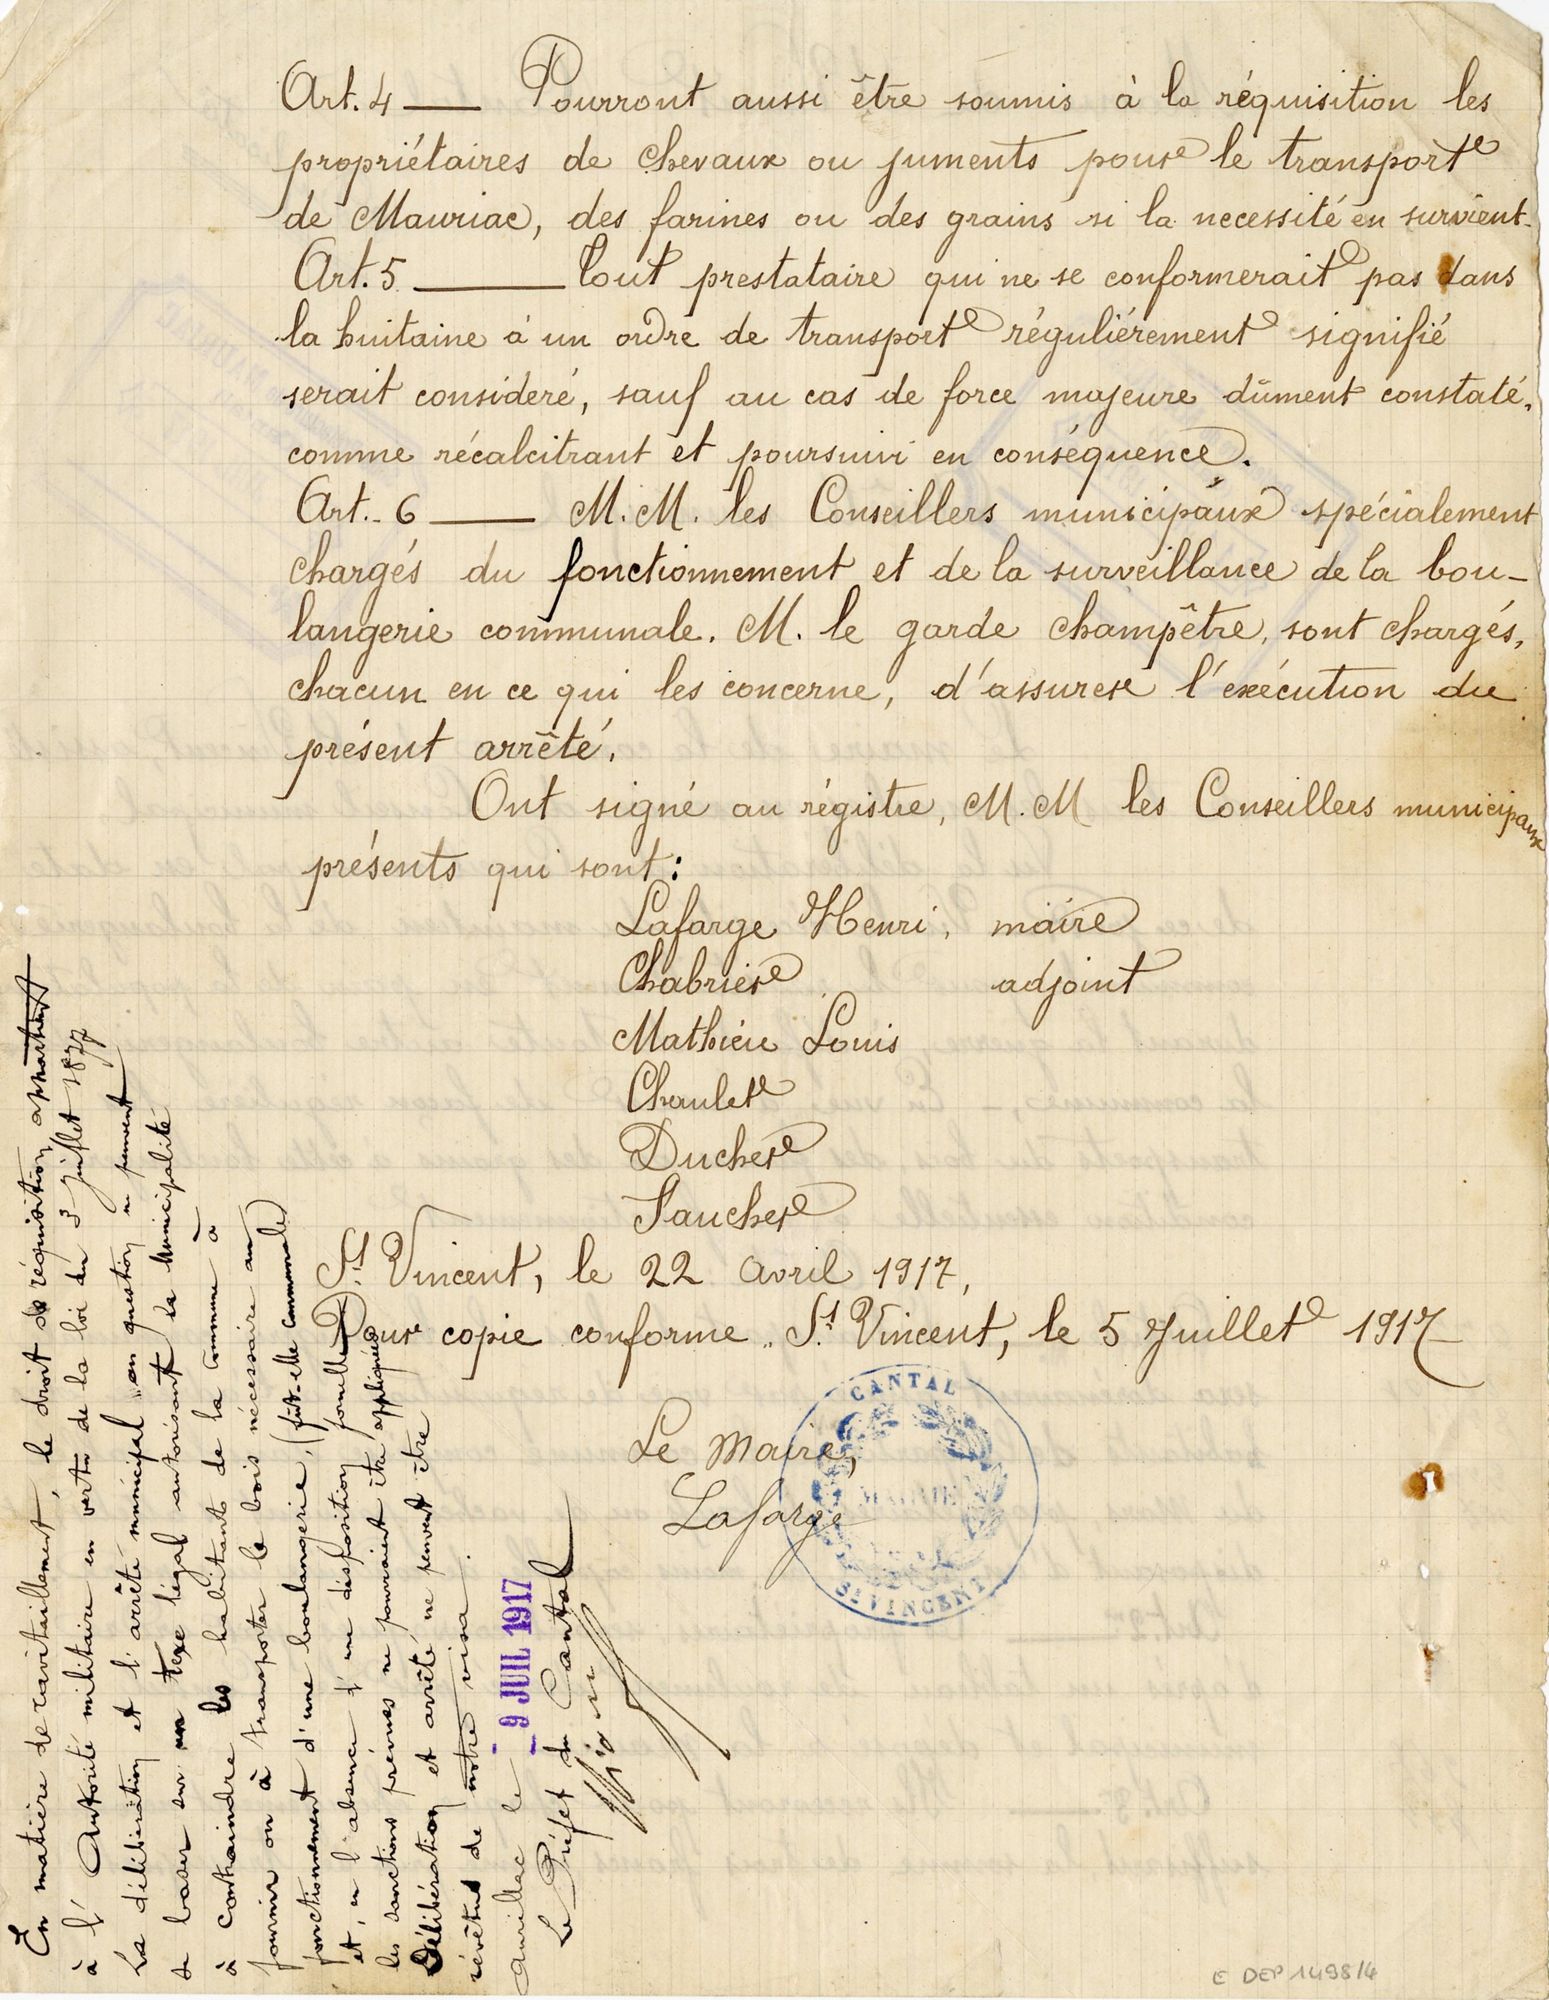 Art. 4 — Pourront aussi être soumis à la réquisition les
propriétaires de chevaux ou juments pour le transport
de Mauriac, des farines ou des grains si la necessité en survient.
Art. 5 — Tout prestataire qui ne se conformerait pas dans
la huitaine à un ordre de transport réguliérement signifié
serait consideré, sauf au cas de force majeure dûment constaté,
comme récalcitrant et poursuivi en conséquence.
Art. 6 — M.M. les Conseillers municipaux spécialement
chargés du fonctionnement et de la surveillance de la bou-
langerie communale. M. le garde champêtre, sont chargés,
chacun en ce qui les concerne, d'assurer l'exécution du
présent arrêté.
Ont signé au régistre, M.M les Conseillers municipaux
présents qui sont :
Lafarge Henri, maire
Chabrier adjoint
Mathieu Louis
Chaulet
Ducher
Faucher
St. Vincent, le 22 avril 1917,
Pour copie conforme St. Vincent, le 5 Juillet 1917
Le Maire,
Lafarge
CANTAL
MAIRIE
St VINCENT
En matière de ravitaillement, le droit de réquisition appartient
à l'Autorité militaire en vertu de la loi du 3 juillet 1877
La délibération et l'arrêté municipal en question ne peuvent
se baser sur un texe légal autorisant la Municipalité
à contraindre les habitants de la Commune à
fournir ou à transporter le bois nécessaire au
fonctionnement d'une boulangerie, (fût-elle communale)
et, en l'absence d'une disposition formelle
les sanctions prévues ne pourraient être appliquées
Délibération et arrêté ne peuvent être
révêtus de notre visa.
Aurillac le - 9 JUIL 1917
Le Préfet du Cantal
E DEP 1498/4